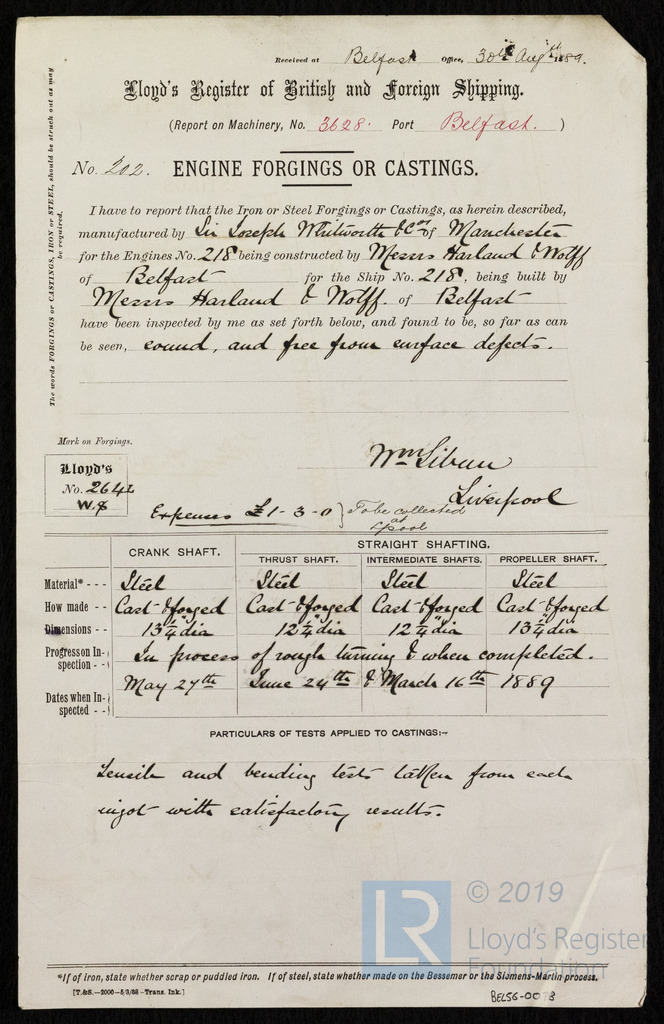 Received at Belfast Office, 30th Augst 1889.
Lloyd's Register of British and Foreign Shipping.
(Report on Machinery, No. 3628. Port Belfast. )
No. 202. ENGINE FORGINGS OR CASTINGS.
The words FORGINGS or CASTINGS, IRON or STEEL, should be struck out as may
be required.
I have to report that the Iron or Steel Forgings or Castings, as herein described,
manufactured by Sir Joseph Whitworth & Co of Manchester
for the Engines No. 218 being constructed by Messrs Harland & Wolff
of Belfast for the Ship No. 218, being built by
Messrs Harland & Wolff. of Belfast
have been inspected by me as set forth below, and found to be, so far as can
be seen, sound, and free from surface defects.
Mark on Forgings.
Lloyd's
No. 264L
W.S
Wm
Liverpool
Expenses £1-3-0 } To be collected
at
Lpool
CRANK SHAFT. STRAIGHT SHAFTING.
THRUST SHAFT. INTERMEDIATE SHAFTS. PROPELLER SHAFT.
Material* - - - Steel Steel Steel Steel
How made - - Cast & forged Cast & forged Cast & forged Cast & forged
Dimensions - - 13¼" dia 12¼" dia 12¼" dia 13¼" dia
Progress on In-
spection - - In process of rough turning & when completed.
Dates when In-
spected - - May 27th June 24th & March 16th 1889
PARTICULARS OF TESTS APPLIED TO CASTINGS:-
Tensile and bending tests taken from each
ingot with satisfactory results.
© 2019
LR Lloyd's Register
Foundation
*If of iron, state whether scrap or puddled iron. If of steel, state whether made on the Bessemer or the Siemens-Martin process.
[T.&S.—2000—5/3/88—Trans. Ink.]
BEL56-0073